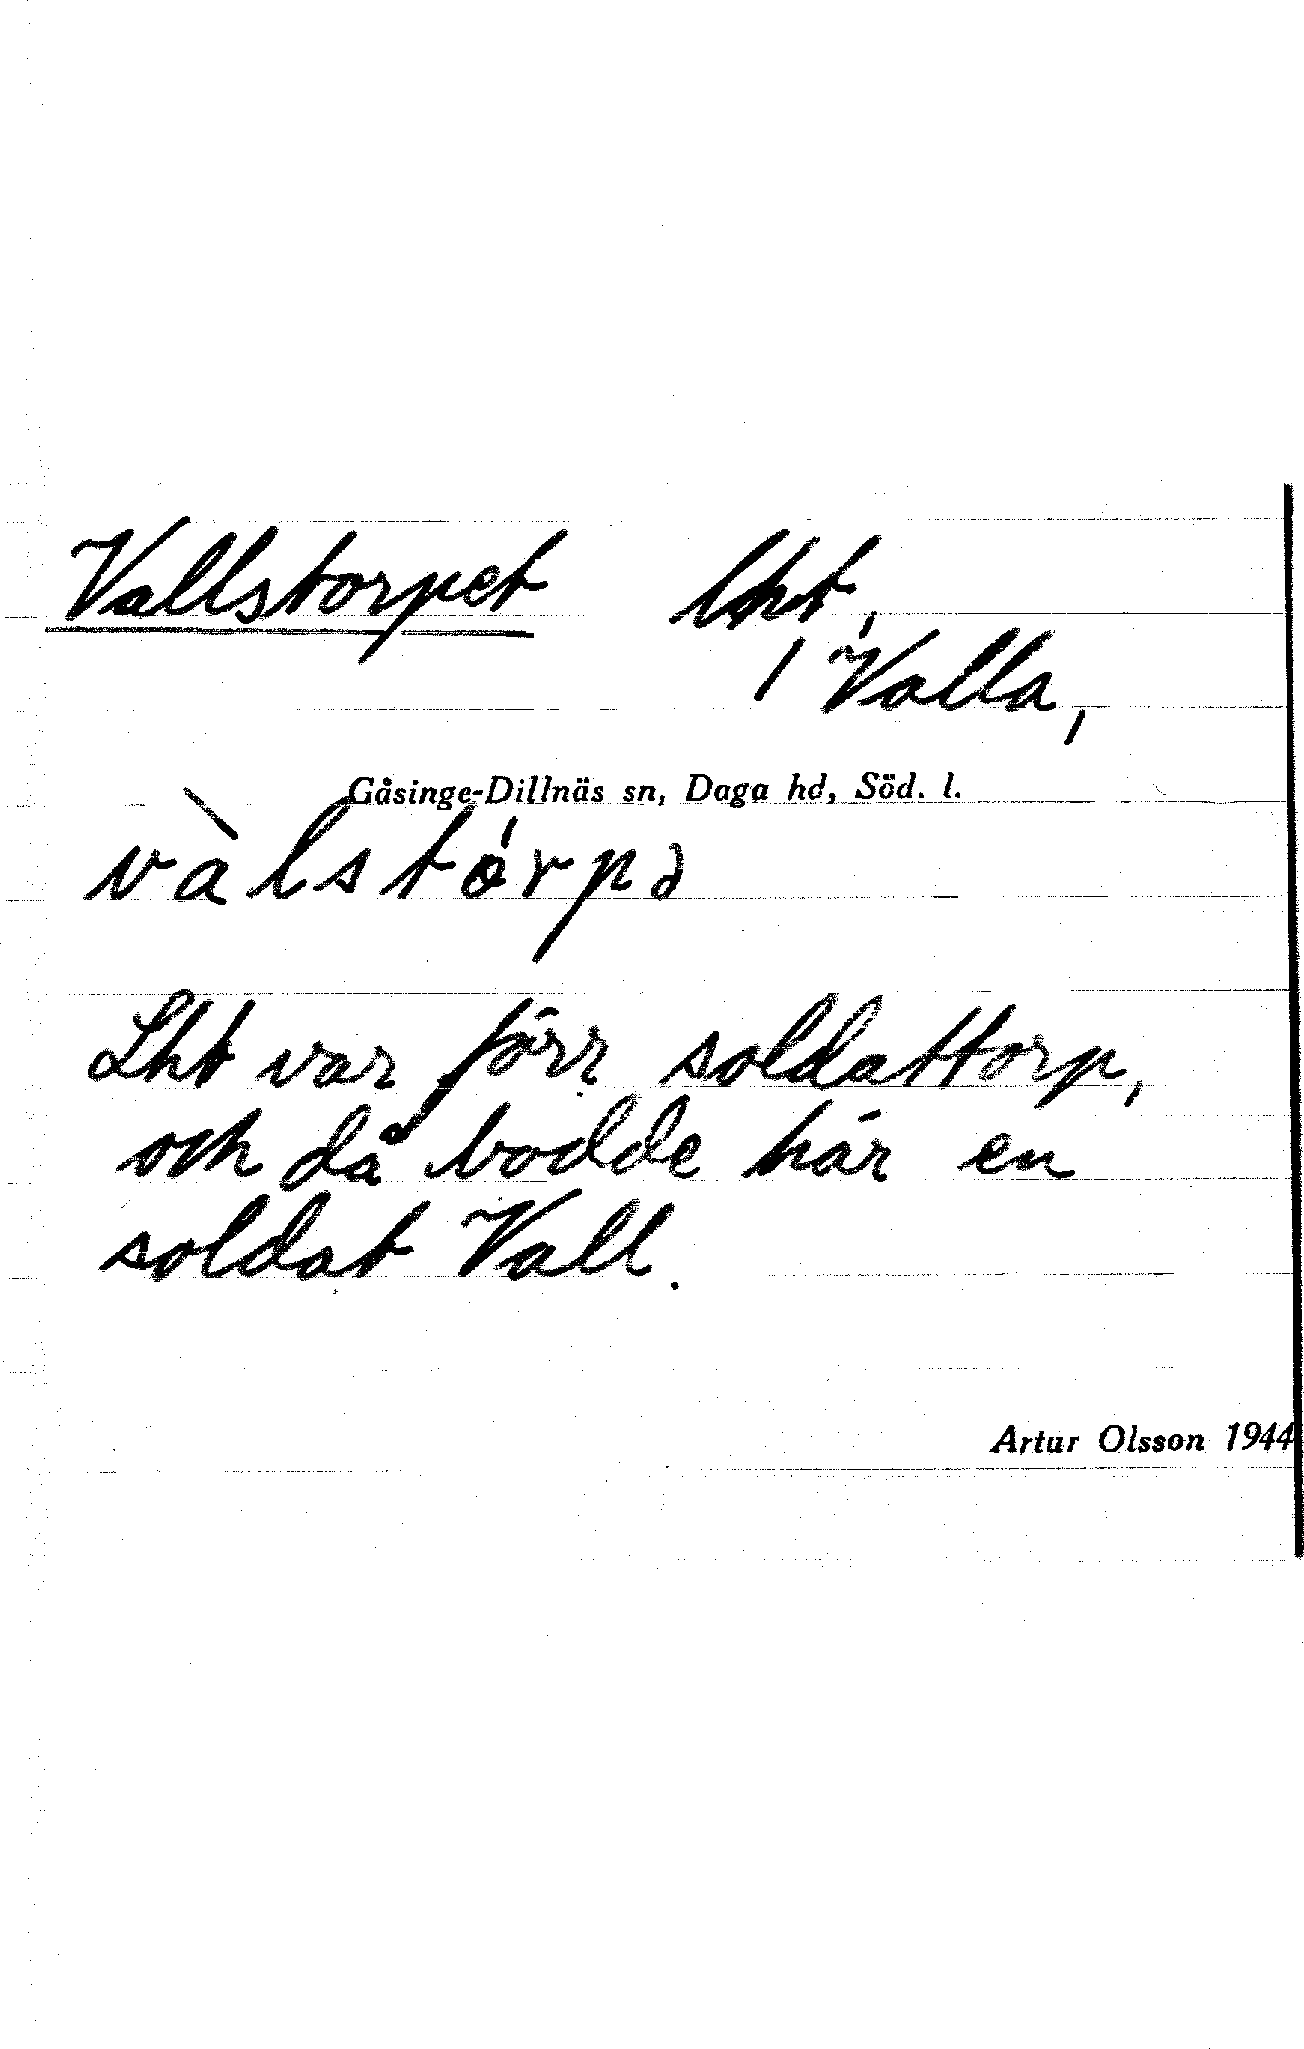 Vallstorpet lht,
1 Valla,
Gåsinge-Dillnäs sn, Daga hd, Söd. l.
vàlstórpə
Lht var förr soldattorp,
och då bodde här en
soldat Vall.
Artur Olsson 1944